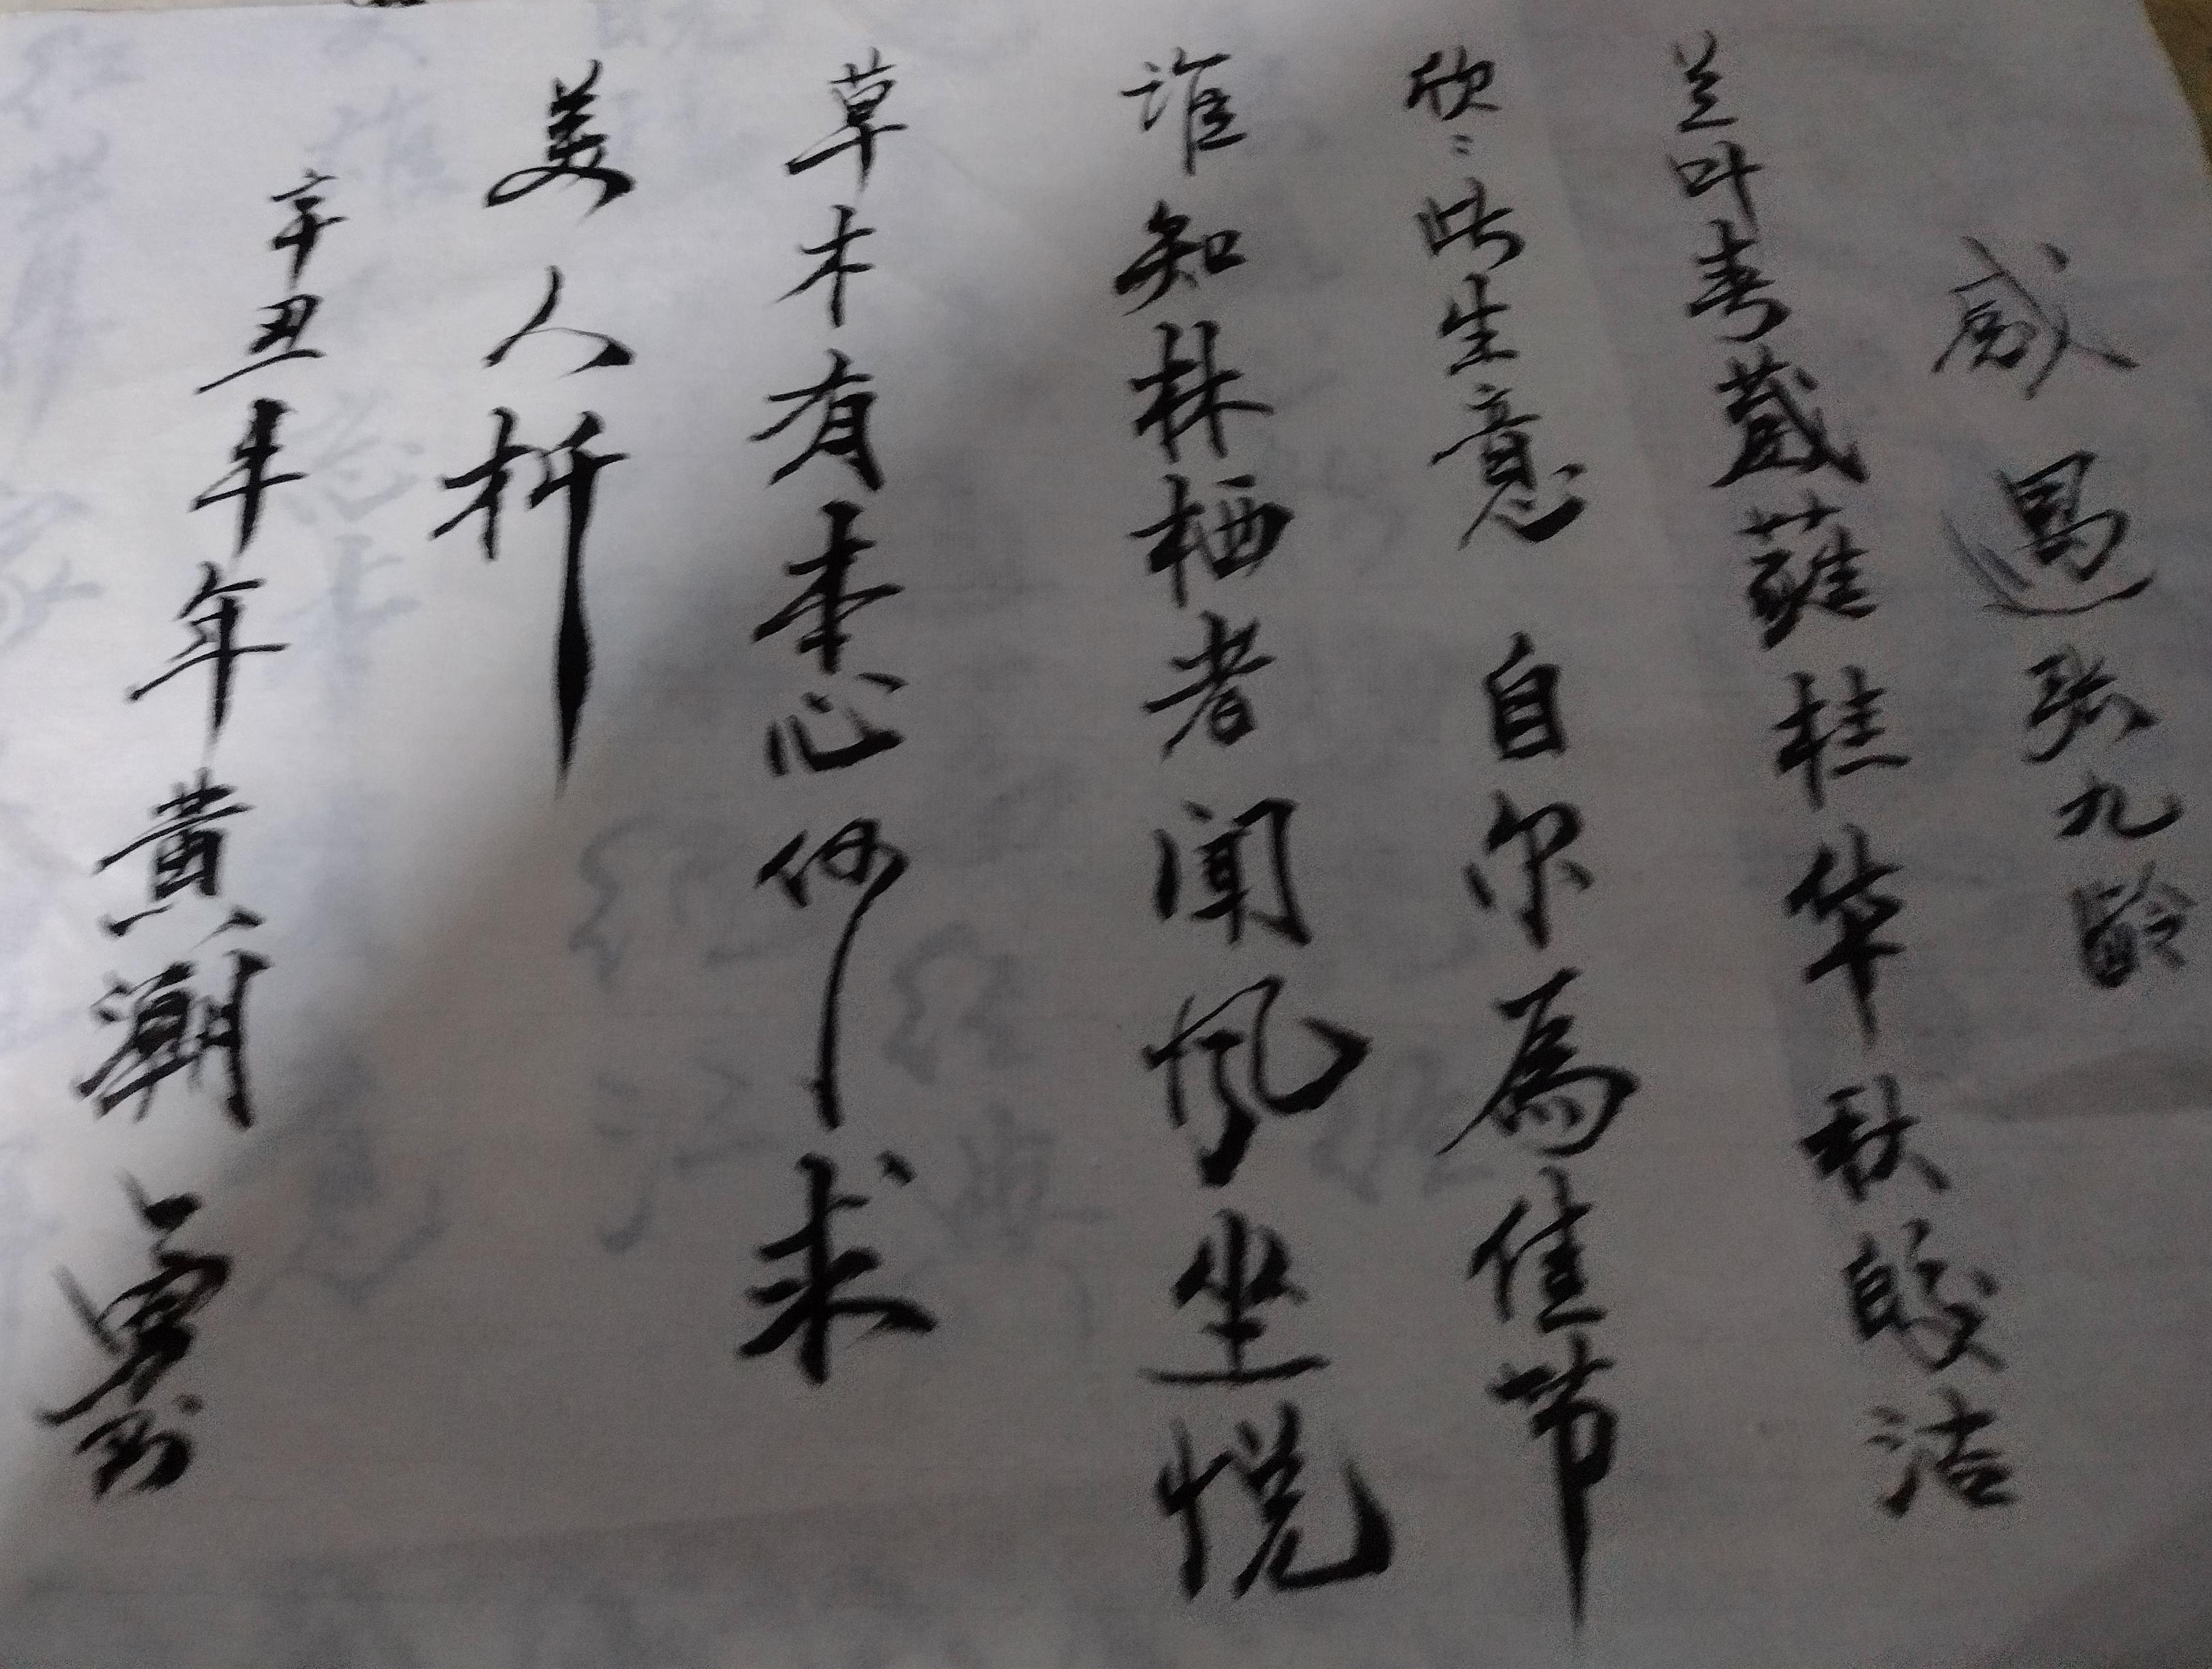 感遇張九齡
兰叶春葳蕤桂华秋皎洁
欣々此生意自尔為佳节
谁知林栖者闻風坐悦
草木有本心何求
美人折
辛丑牛年黄潮